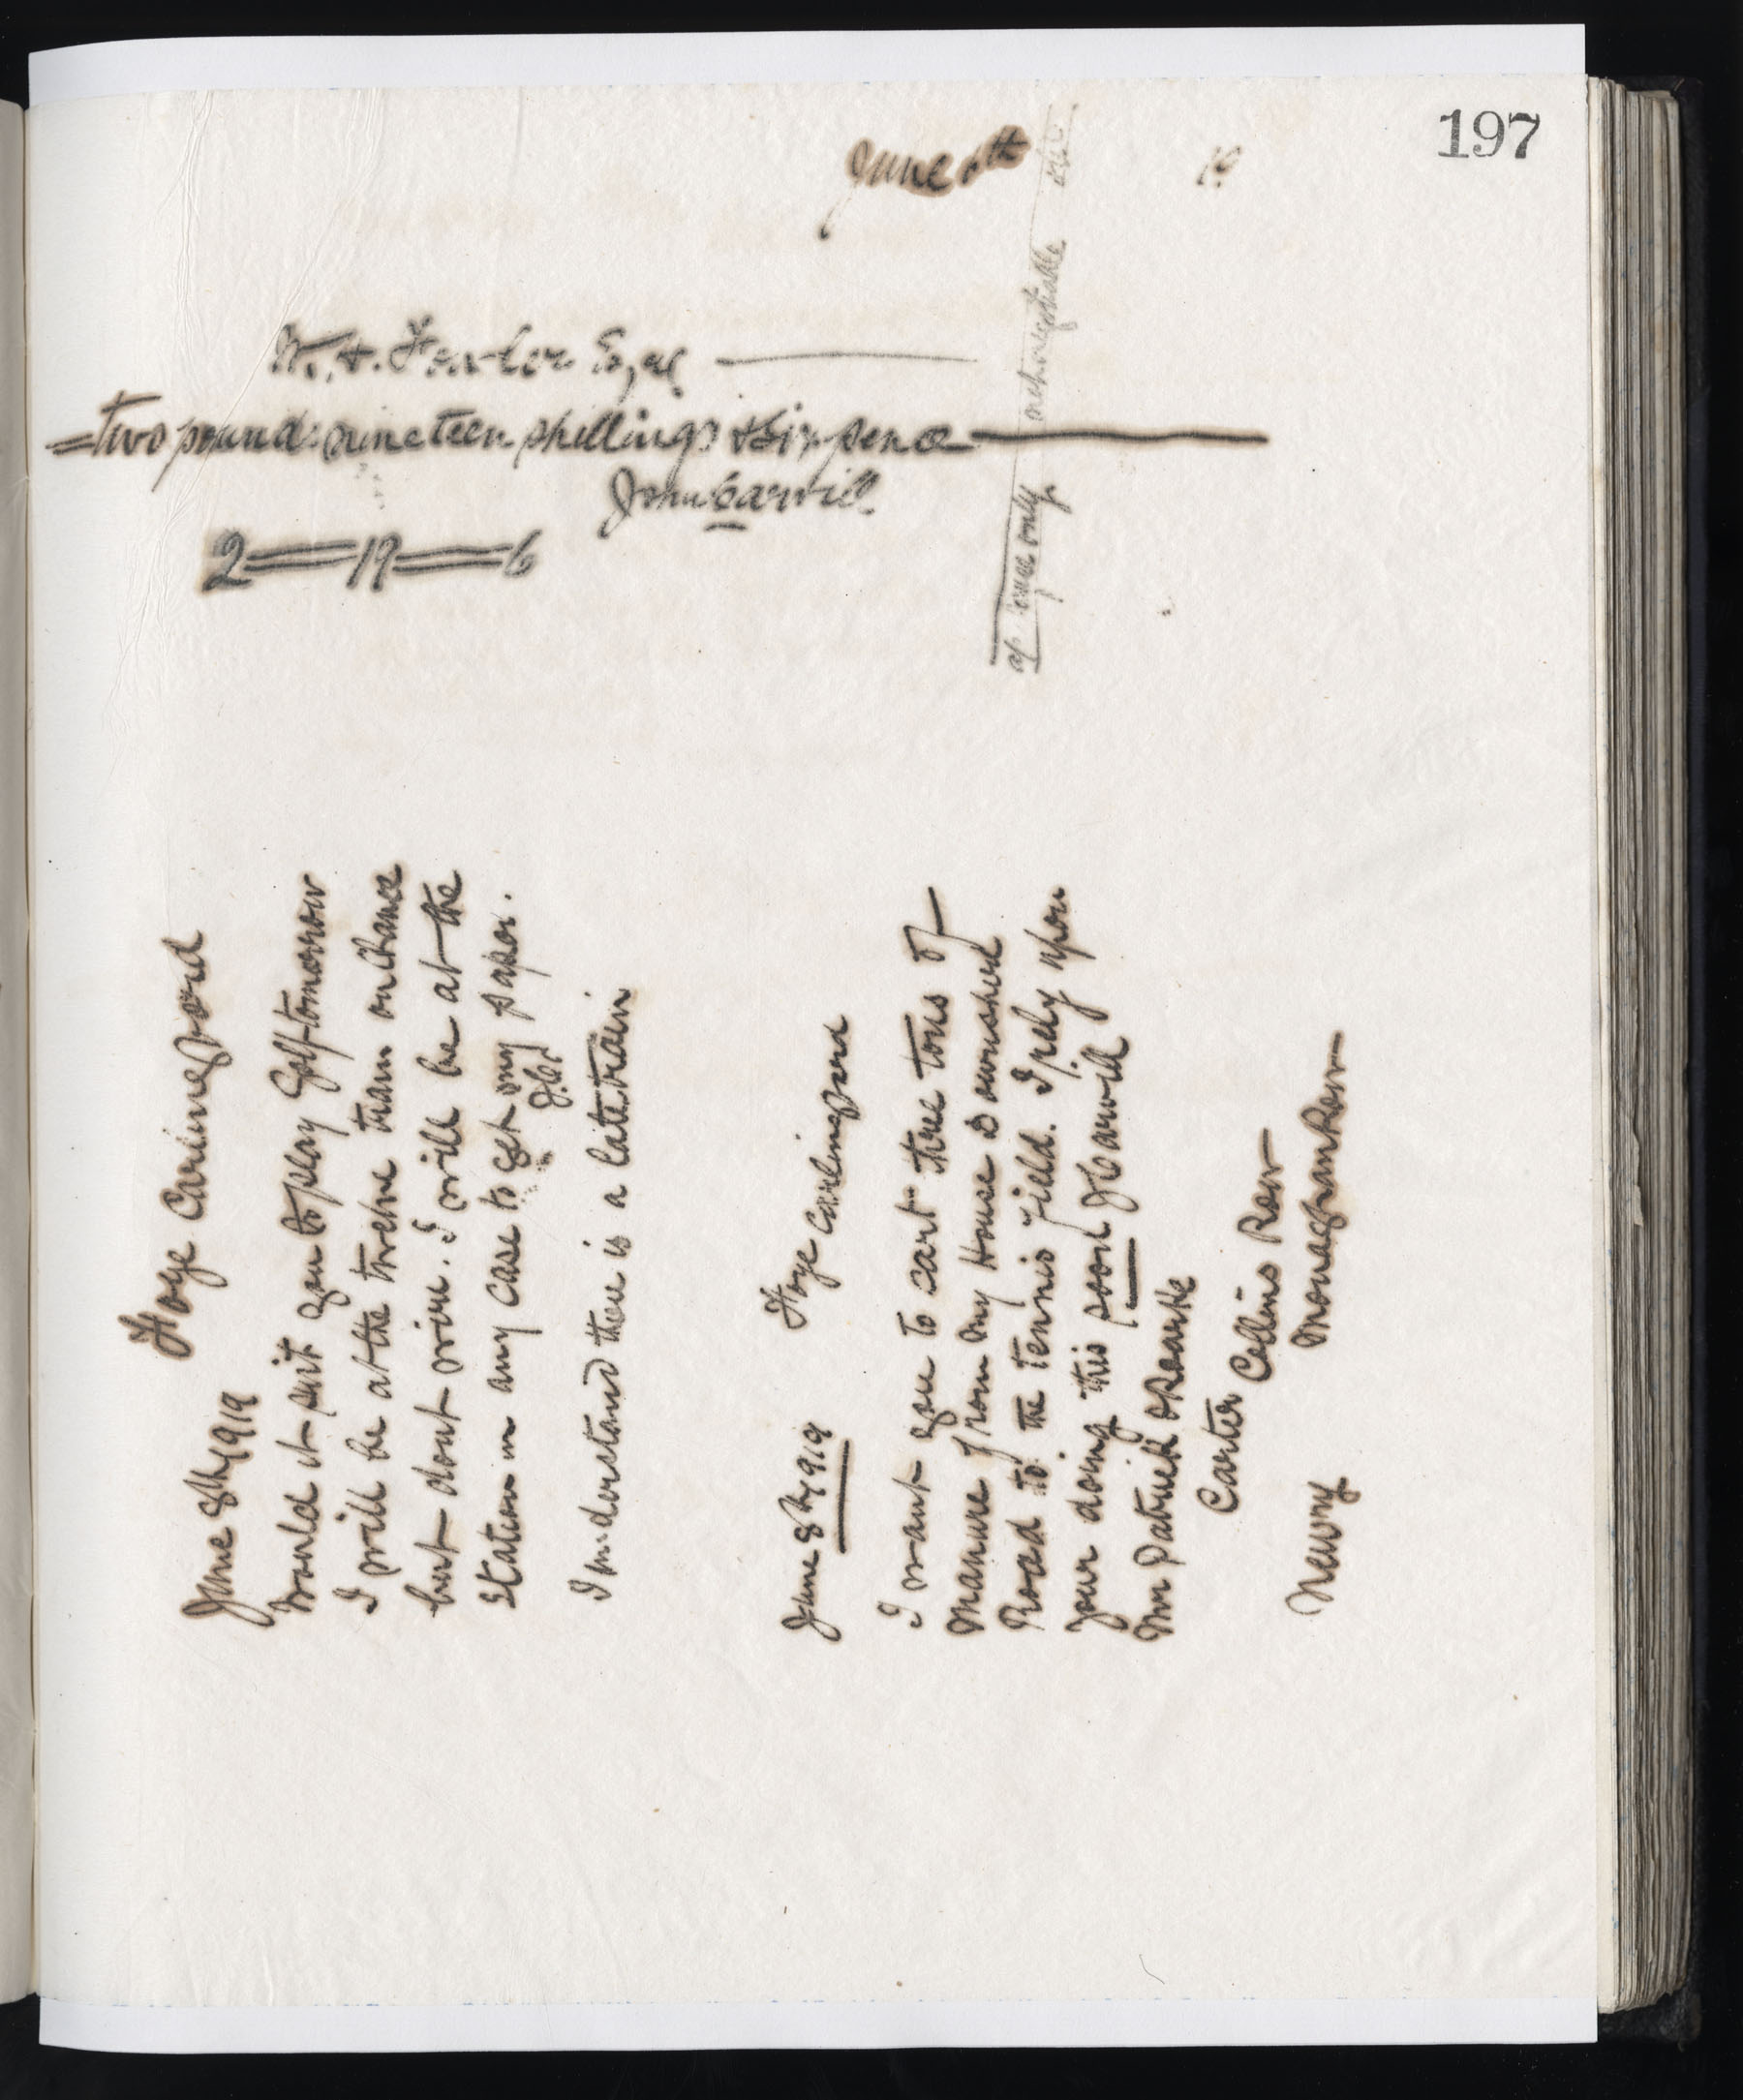 197
June 6th 19
W. H. Esqre
two pounds nineteen shillings & six pence
John Carvill
2=19=6
a/c payee only not negotiable
June 8th/1919 Foye Carlingford
Would it suit you to play Golf tomorrow
I will be at the twelve train on chance
but dont wire. I will be at the
Station in any case to get my paper.
J.C.
I understand there is a late train
June 8th/1919 Foye Carlingford
I want you to cart three tons of
manure from my House Downshire
Road to the tennis field. I rely upon
your doing this soon J Carvill
Mr Patrick ORourke
Carter Collins Row
Newry Monaghan Row